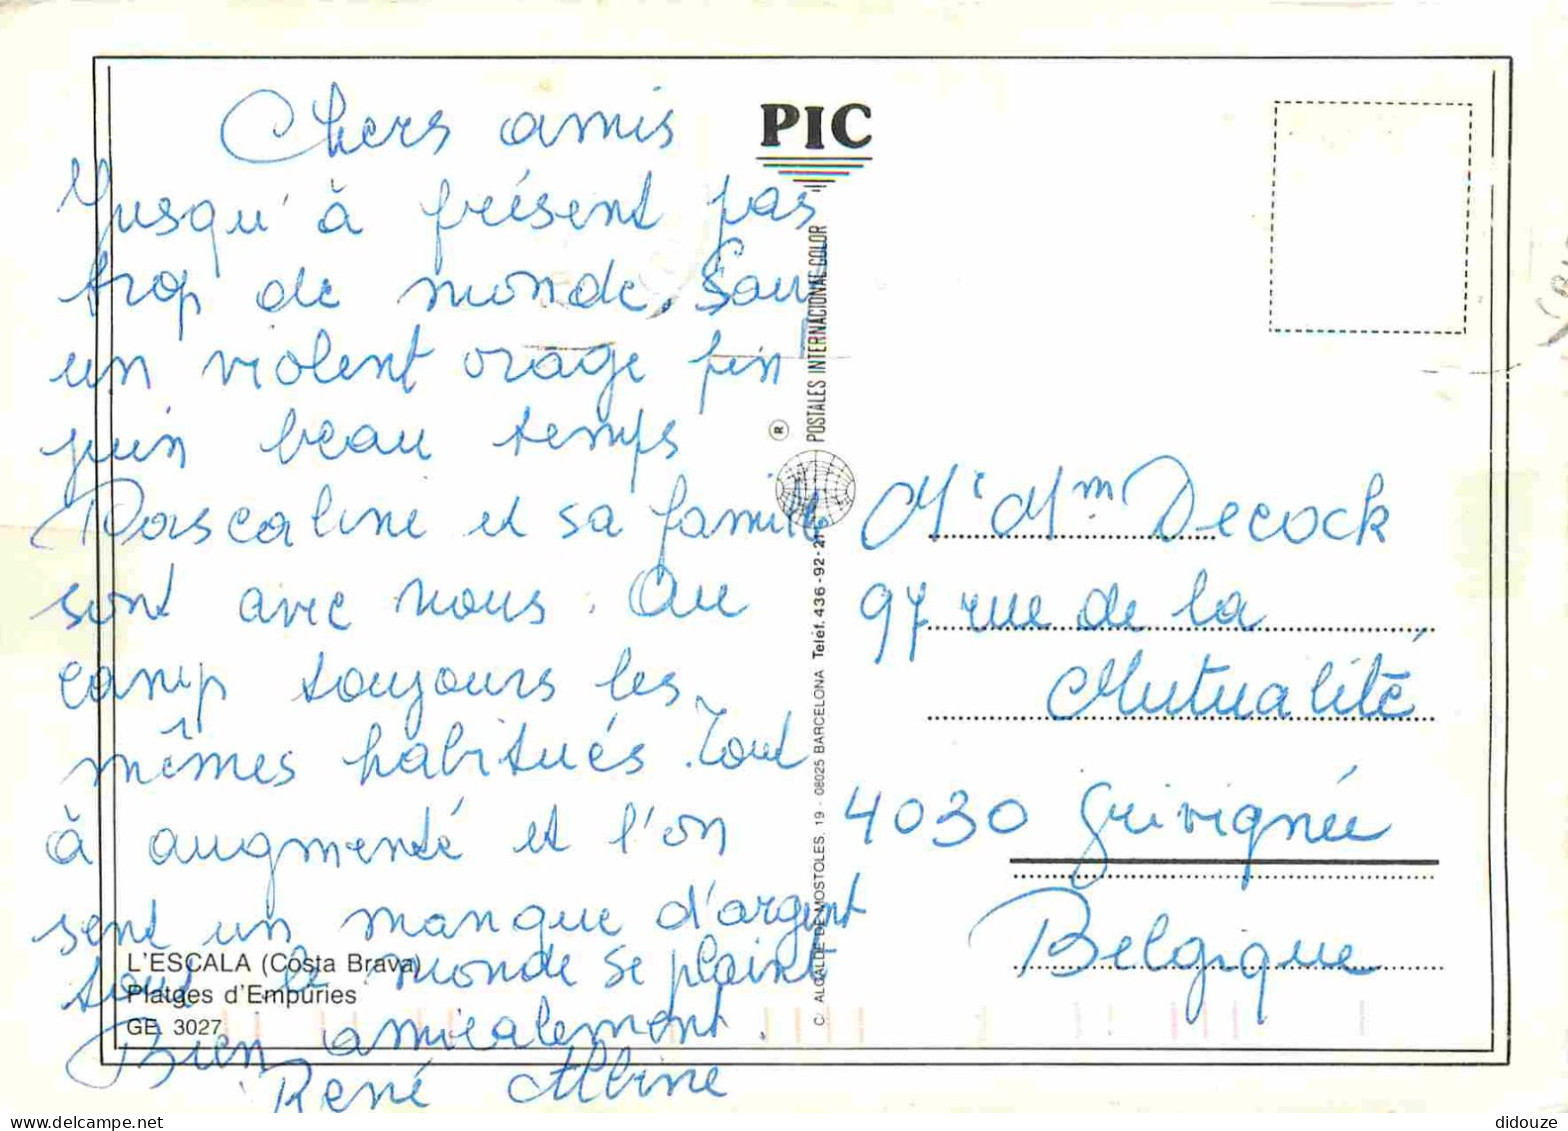 Chers amis
Jusqu'à présent pas
trop de monde. Sauf
un violent orage fin
juin beau temps
Pascaline et sa famille
sont avec nous. Au
camp toujours les
mêmes habitués. Tout
à augmenté et l'on
sent un manque d'argent
tout le monde se plaint
Bien amicalement.
René Albine
L'ESCALA (Costa Brava)
Platges d'Empúries
GE 3027
PIC
C/ ALCALDE DE MOSTOLES, 19 - 08025 BARCELONA Teléf. 436-92-21
® POSTALES INTERNACIONAL COLOR
Mr Mm Decock
97 rue de la
Mutualité
4030 Grivignée
Belgique
didouze